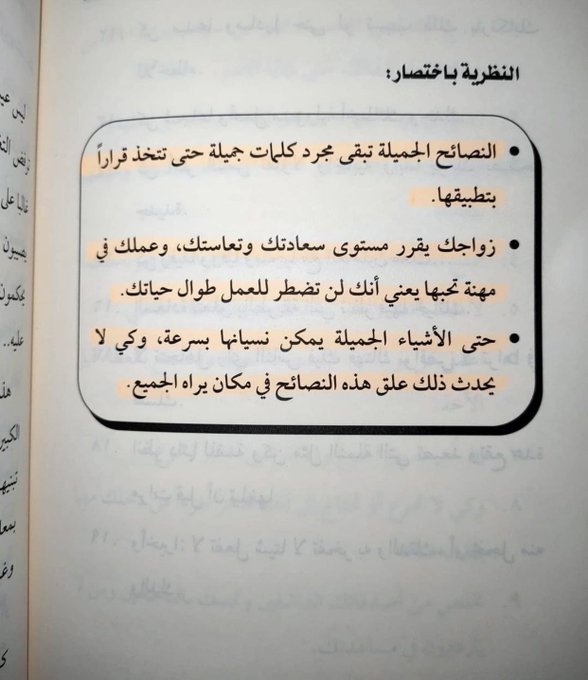 النظرية باختصار:
• النصائح الجميلة تبقى مجرد كلمات جميلة حتى تتخذ قراراً
بتطبيقها.
• زواجك يقرر مستوى سعادتك وتعاستك، وعملك في
مهنة تحبها يعني أنك لن تضطر للعمل طوال حياتك.
• حتى الأشياء الجميلة يمكن نسيانها بسرعة، وكي لا
يحدث ذلك علق هذه النصائح في مكان يراه الجميع.